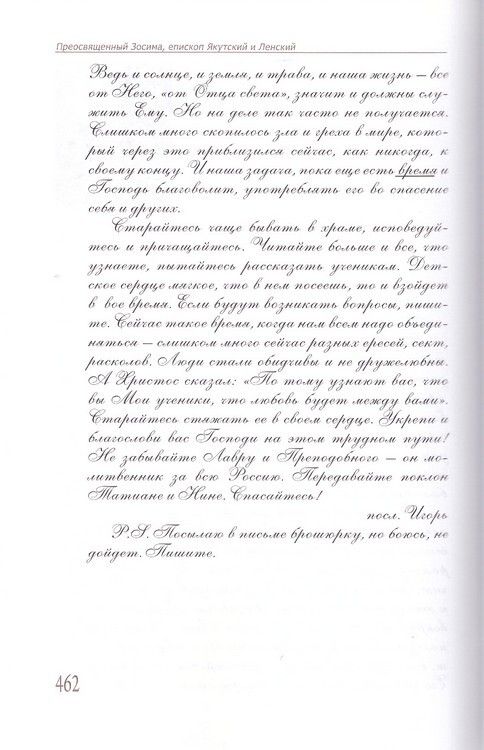 Преосвященный Зосима, епископ Якутский и Ленский
Ведь и солнце, и земля, и трава, и наша жизнь – все
от Него, «от Отца света», значит и должны слу-
жить Ему. Но на деле так часто не получается.
Слишком много скопилось зла и греха в мире, кото-
рый через это приблизился сейчас, как никогда, к
своему концу. И наша задача, пока еще есть время и
Господь благоволит, употреблять его во спасение
себя и других.
Старайтесь чаще бывать в храме, исповедуй-
тесь и причащайтесь. Читайте больше и все, что
узнаете, пытайтесь рассказать ученикам. Дет-
ское сердце мягкое, что в нем посеешь, то и взойдет
в вое время. Если будут возникать вопросы, пиши-
те. Сейчас такое время, когда нам всем надо объеди-
няться – слишком много сейчас разных ересей, сект,
расколов. Люди стали обидчивы и не дружелюбны.
А Христос сказал: «По тому узнают вас, что
вы Мои ученики, что любовь будет между вами».
Старайтесь стяжать ее в своем сердце. Укрепи и
благослови вас Господи на этом трудном пути!
Не забывайте Лавру и Преподобного – он мо-
литвенник за всю Россию. Передавайте поклон
Татиане и Нине. Спасайтесь!
посл. Игорь
P.S. Посылаю в письме брошюрку, но боюсь, не
дойдет. Пишите.
462